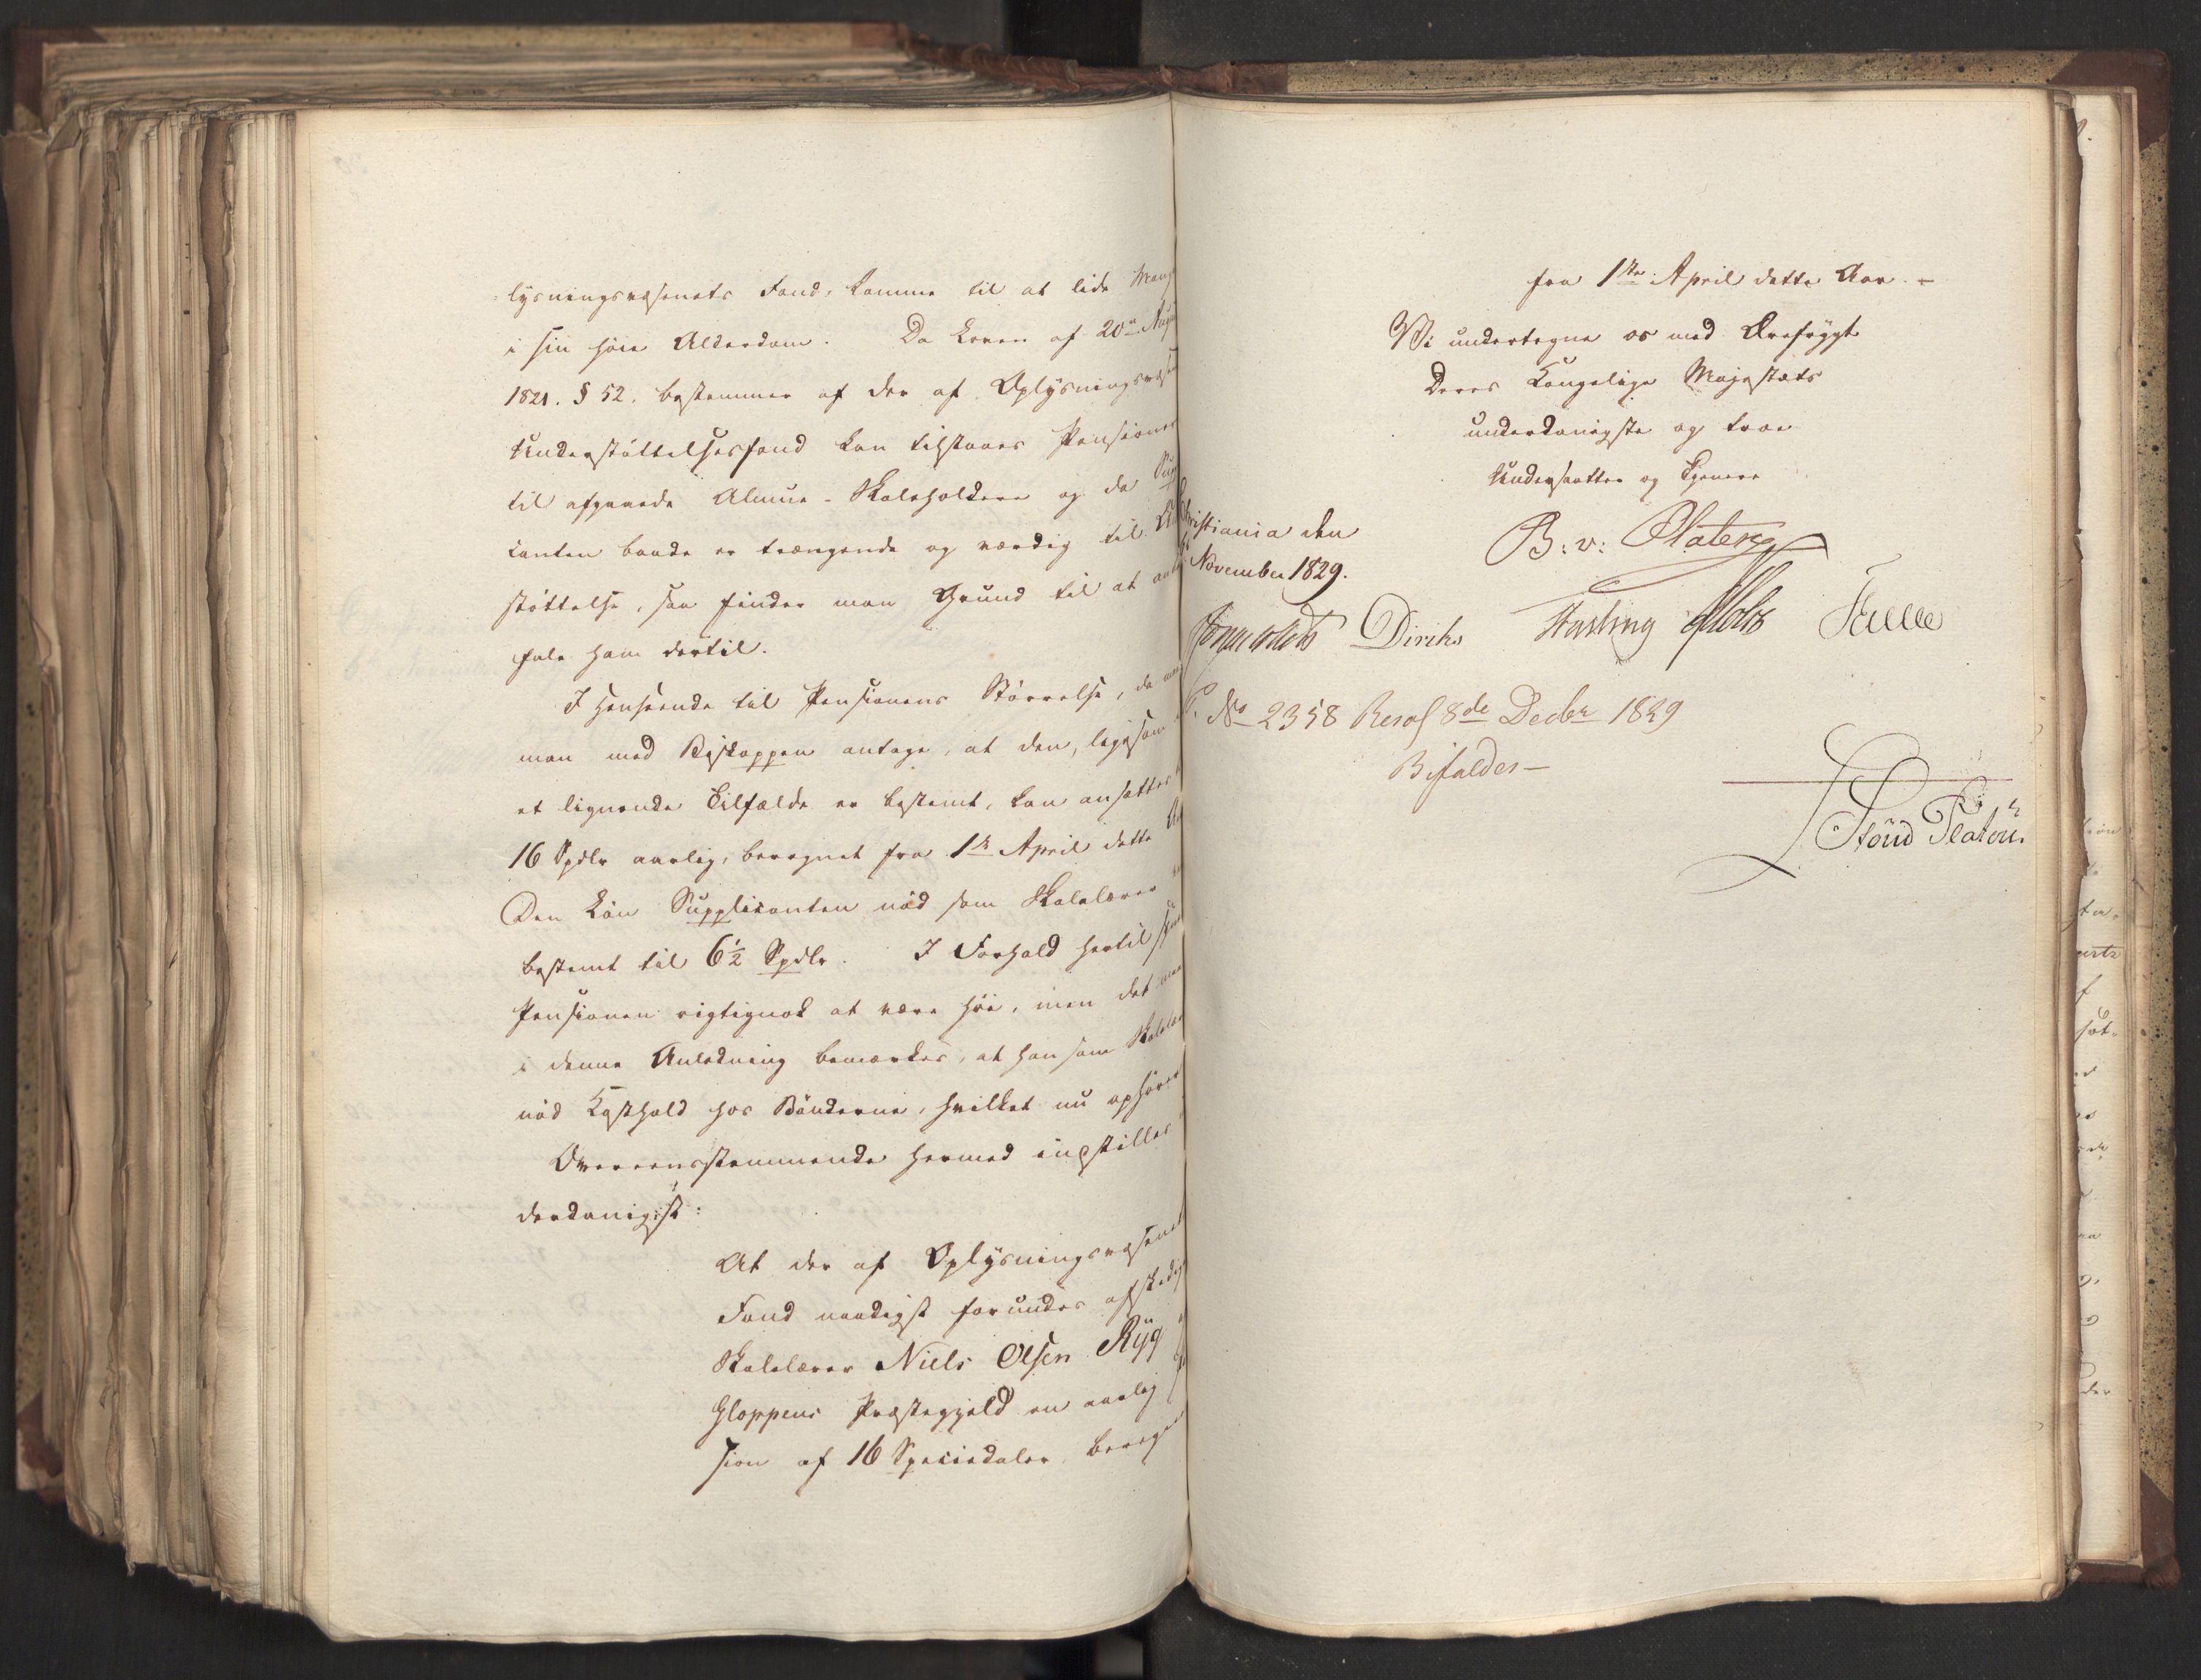 lysningsvæsenets Fond, komme til at lide Mang
i sin høie Alderdom. Da Loven af 20de Augu
1821. § 52. bestemmer at der af Oplysningsvæsen
Understøttelsesfond kan tilstaaes Pensioner
til afgaaede Almue-Skoleholdere og da Sup
canten baade er trængende og værdig til Un
støttelse, saa finder man Grund til at an
fale ham dertil.
I Henseende til Pensionens Størrelse, da
man med Biskoppen antage, at den, ligesom
et lignende Tilfælde er bestemt, kan ansættes
16 Spdlr aarlig, beregnet fra 1ste April dette Aa
Den Løn Supplicanten nød som Skolelærer
bestemt til 6½ Spdlr. I Forhold hertil syn
Pensionen rigtignok at være høi, men det maa
i denne Anledning bemærkes, at han som Skolelæ
nød Kosthold hos Bønderne, hvilket nu ophører
Overeensstemmende hermed indstilles
derdanigst:
At der af Oplysningsvæsenet
Fond naadigst forundes afskedig
Skolelærer Niels Olsen Ryg i
Gloppens Præstegjeld en aarlig
sion af 16 Speciedaler, beregn
fra 1ste April dette Aar. -
Vi undertegne os med Ærefrygt
Deres Kongelige Majestæts
underdanigste og troe
Undersaatter og Tjenere
Christiania den
November 1829.
B: v: Platen
Diriks Fasting
No 2358 Resol 8de Decbr 1829
Bifaldes—